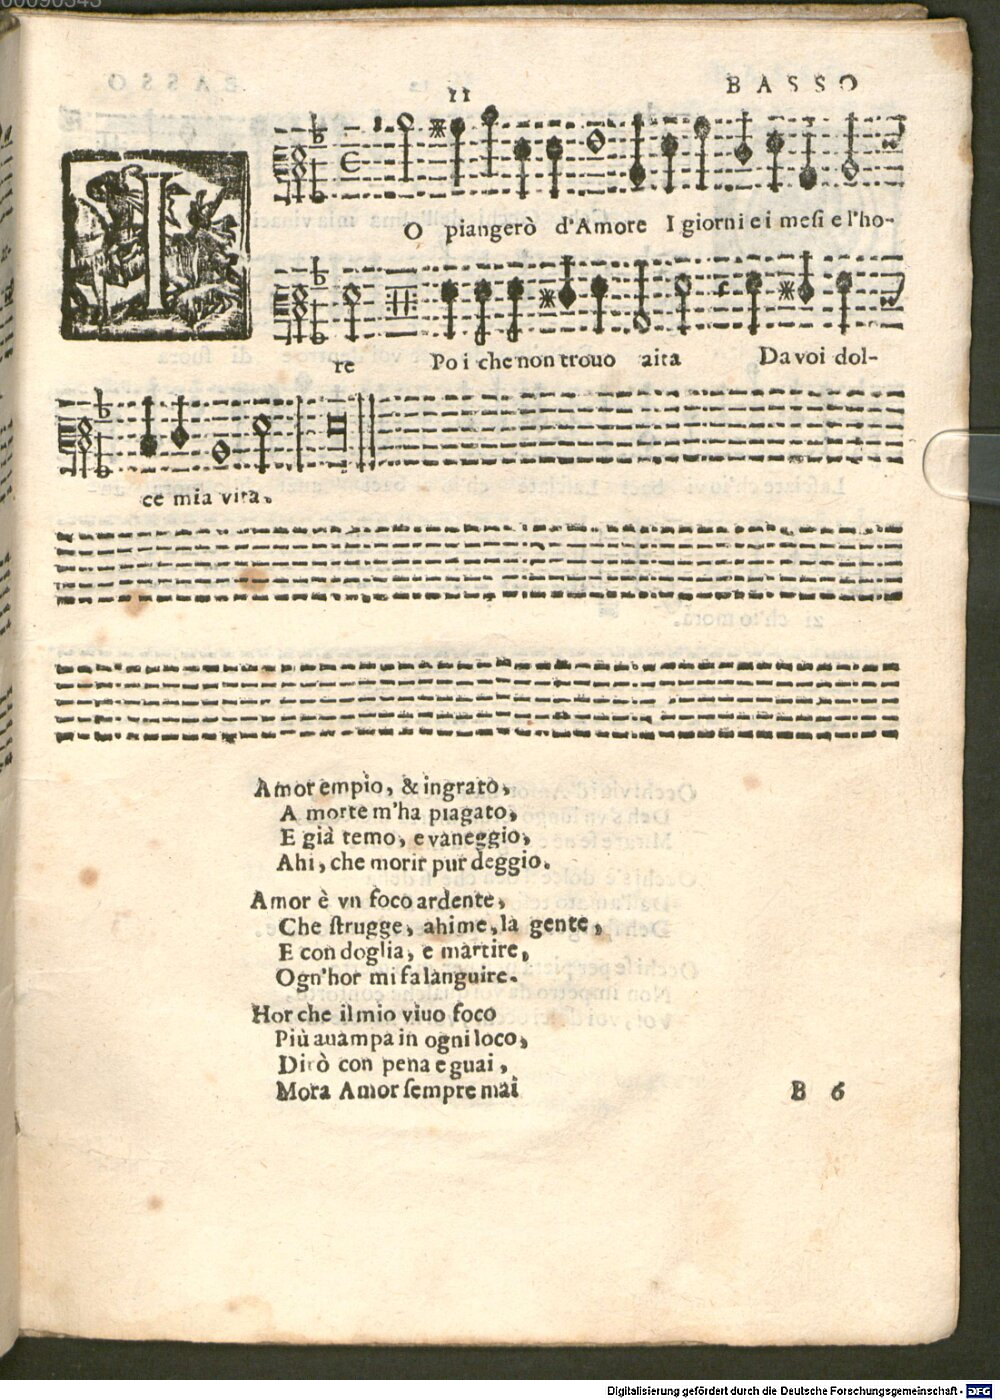 00090545
11
BASSO
I
O piangerò d'Amore I giorni e i mesi e l'ho-
re Poi che non trouo aita Da voi dol-
ce mia vita.
Amor empio, & ingrato,
A morte m'ha piagato,
E già temo, e vaneggio,
Ahi, che morir pur deggio.
Amor è vn foco ardente,
Che strugge, ahime, la gente,
E con doglia, e martire,
Ogn'hor mi fa languire.
Hor che il mio viuo foco
Più auampa in ogni loco,
Dirò con pena e guai,
Mora Amor sempre mai
B 6
Digitalisierung gefördert durch die Deutsche Forschungsgemeinschaft - DFG